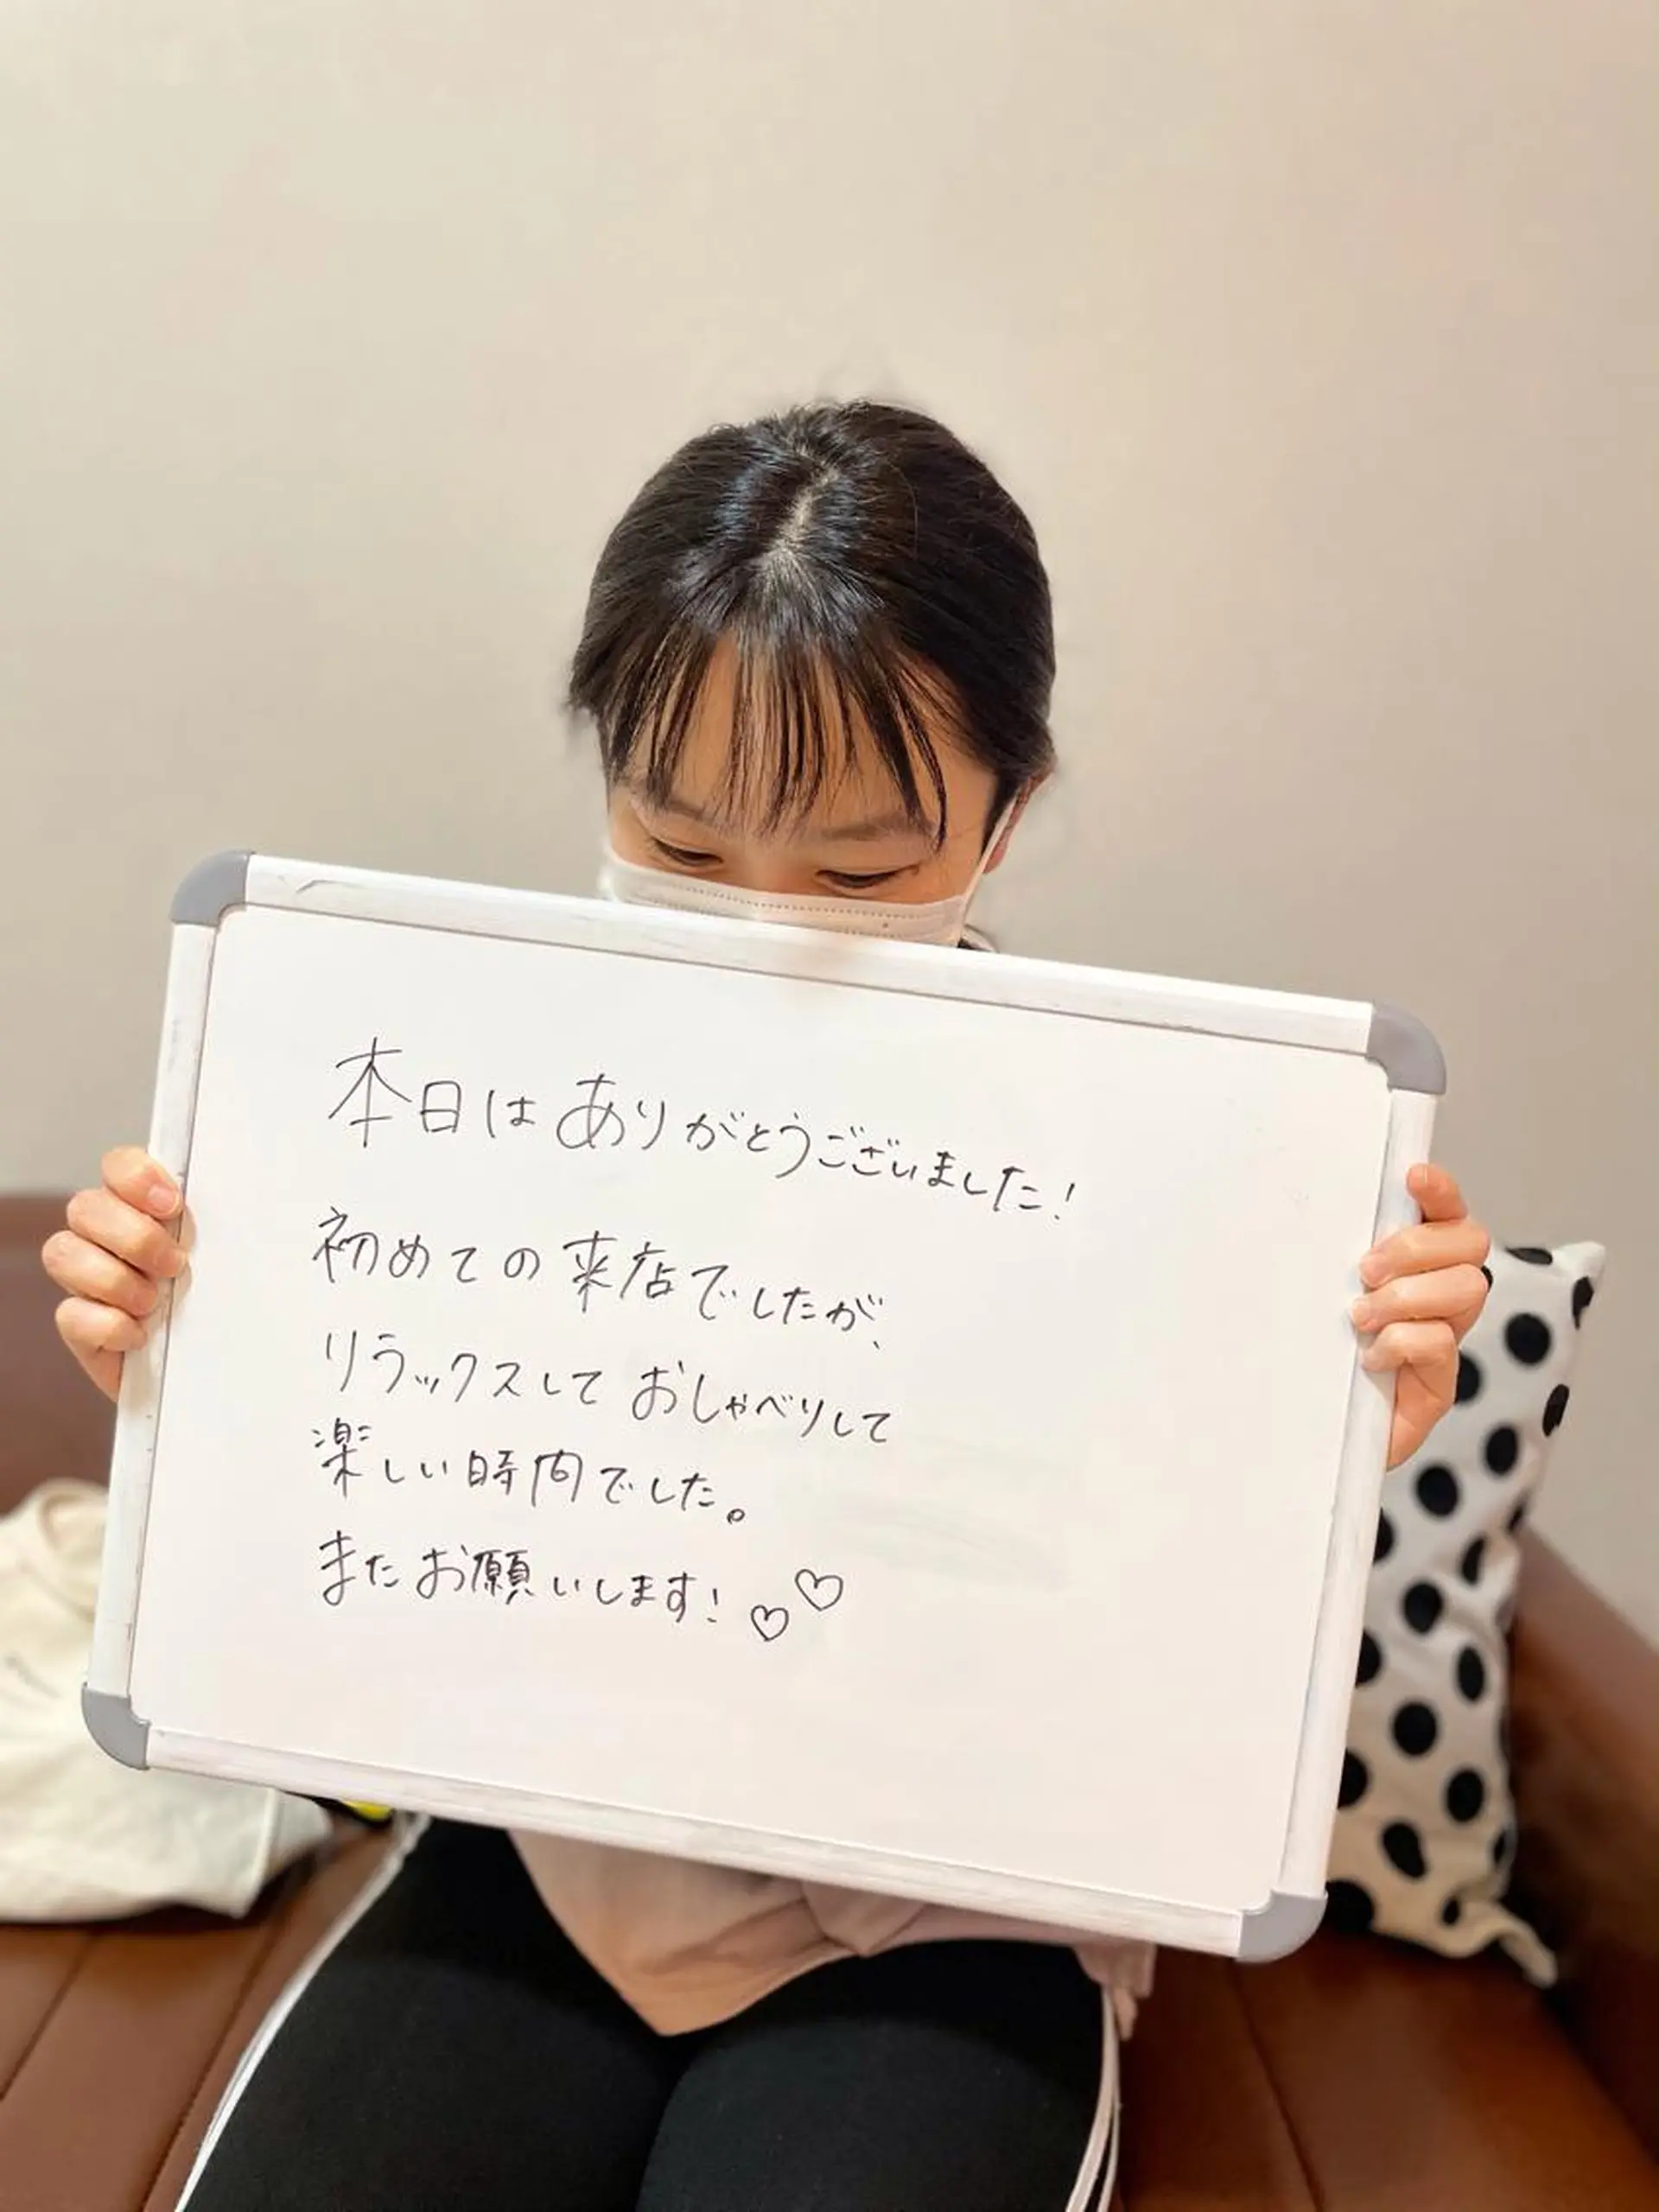 本日はありがとうございました!
初めての来店でしたが、
リラックスしておしゃべりして
楽しい時間でした。
またお願いします!♡♡